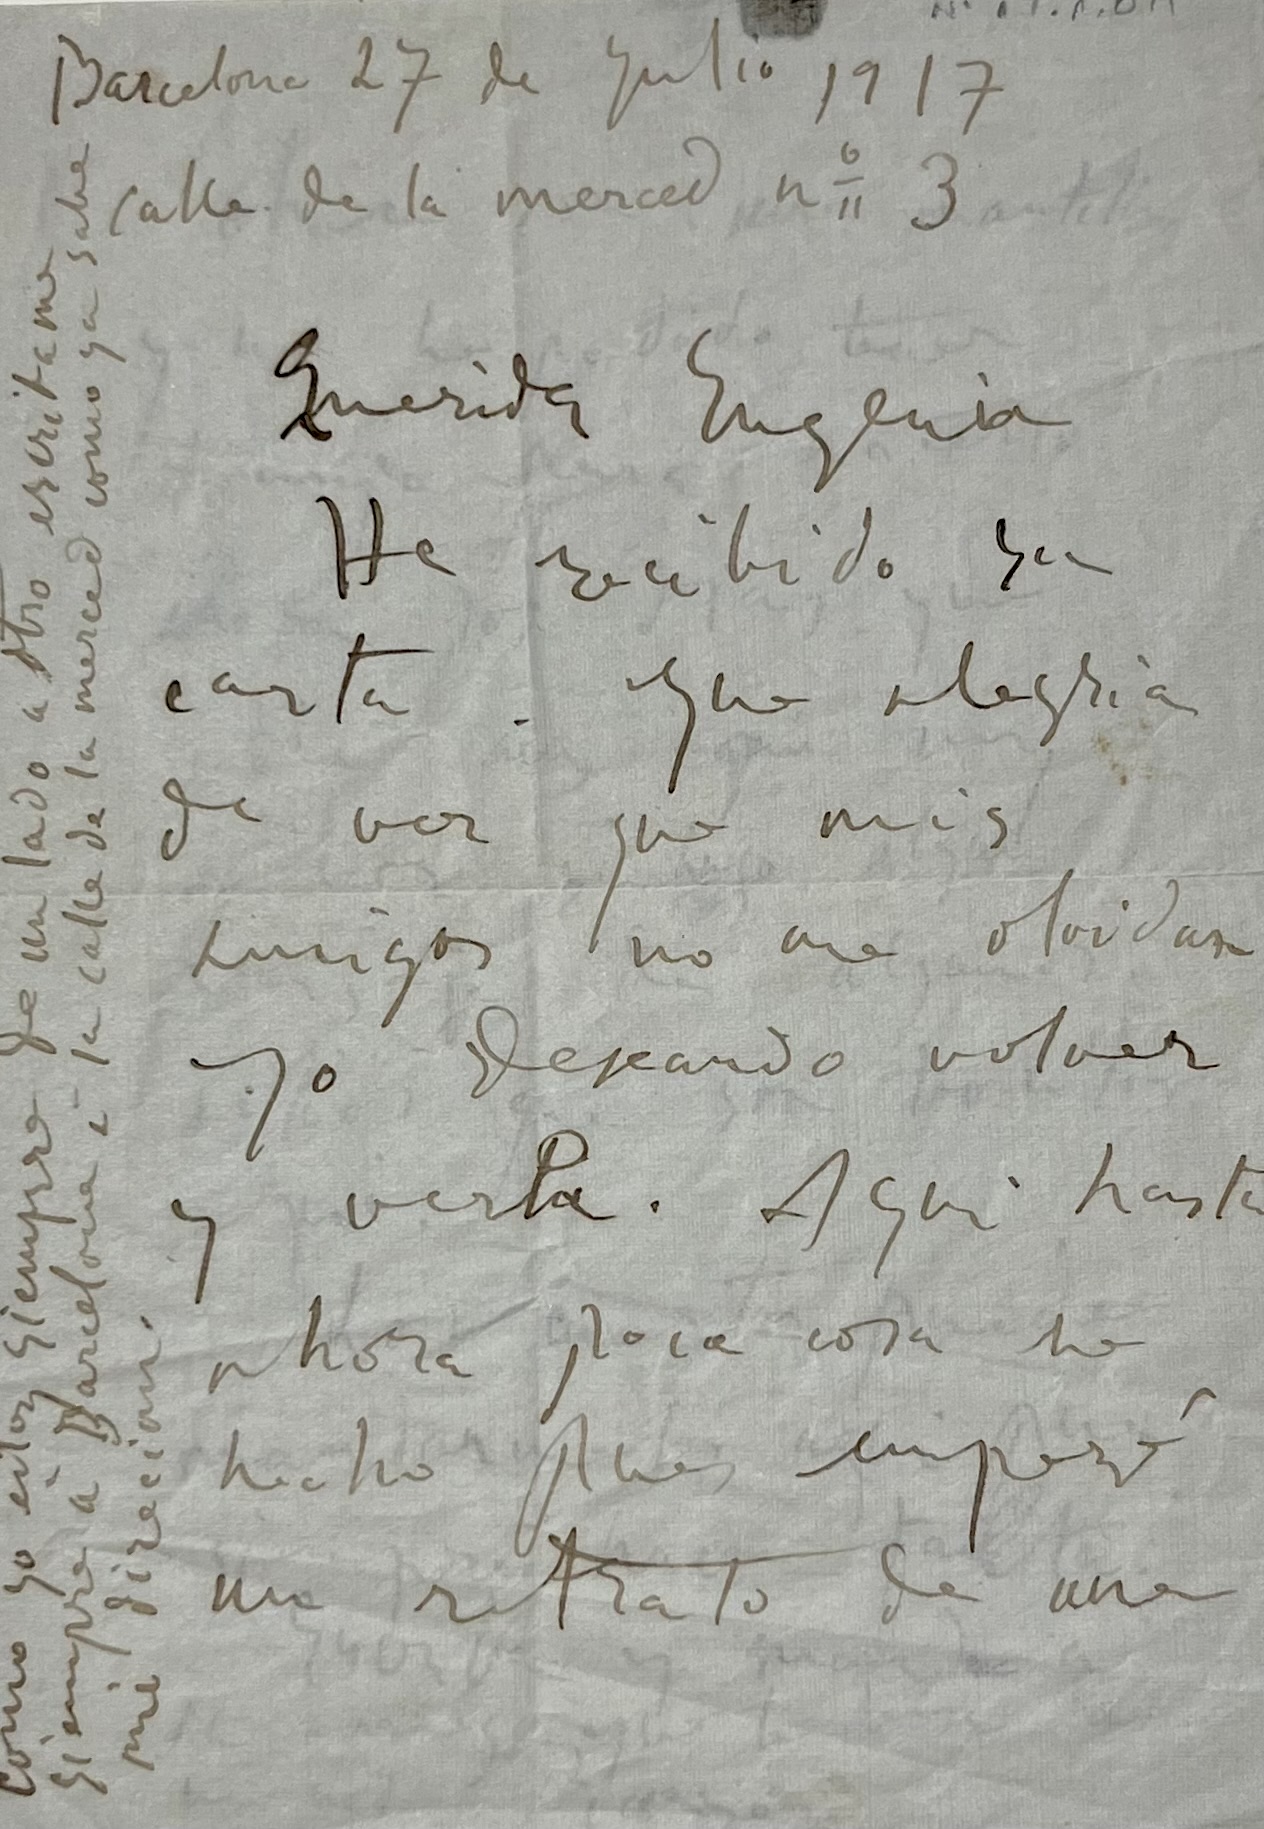 Barcelona 27 de Julio 1917
calle de la merced nº 3
Querida Eugenia
He recibido su
carta. que alegria
de ver que mis
amigos no me olvidan
yo deseando volver
y verla. Aqui hasta
ahora poca cosa he
hecho pues empezé
un retrato de una
Como yo estoy siempre de un lado a otro escritame
siempre à Barcelona à la calle de la merced como ya sabe
mi direccion.